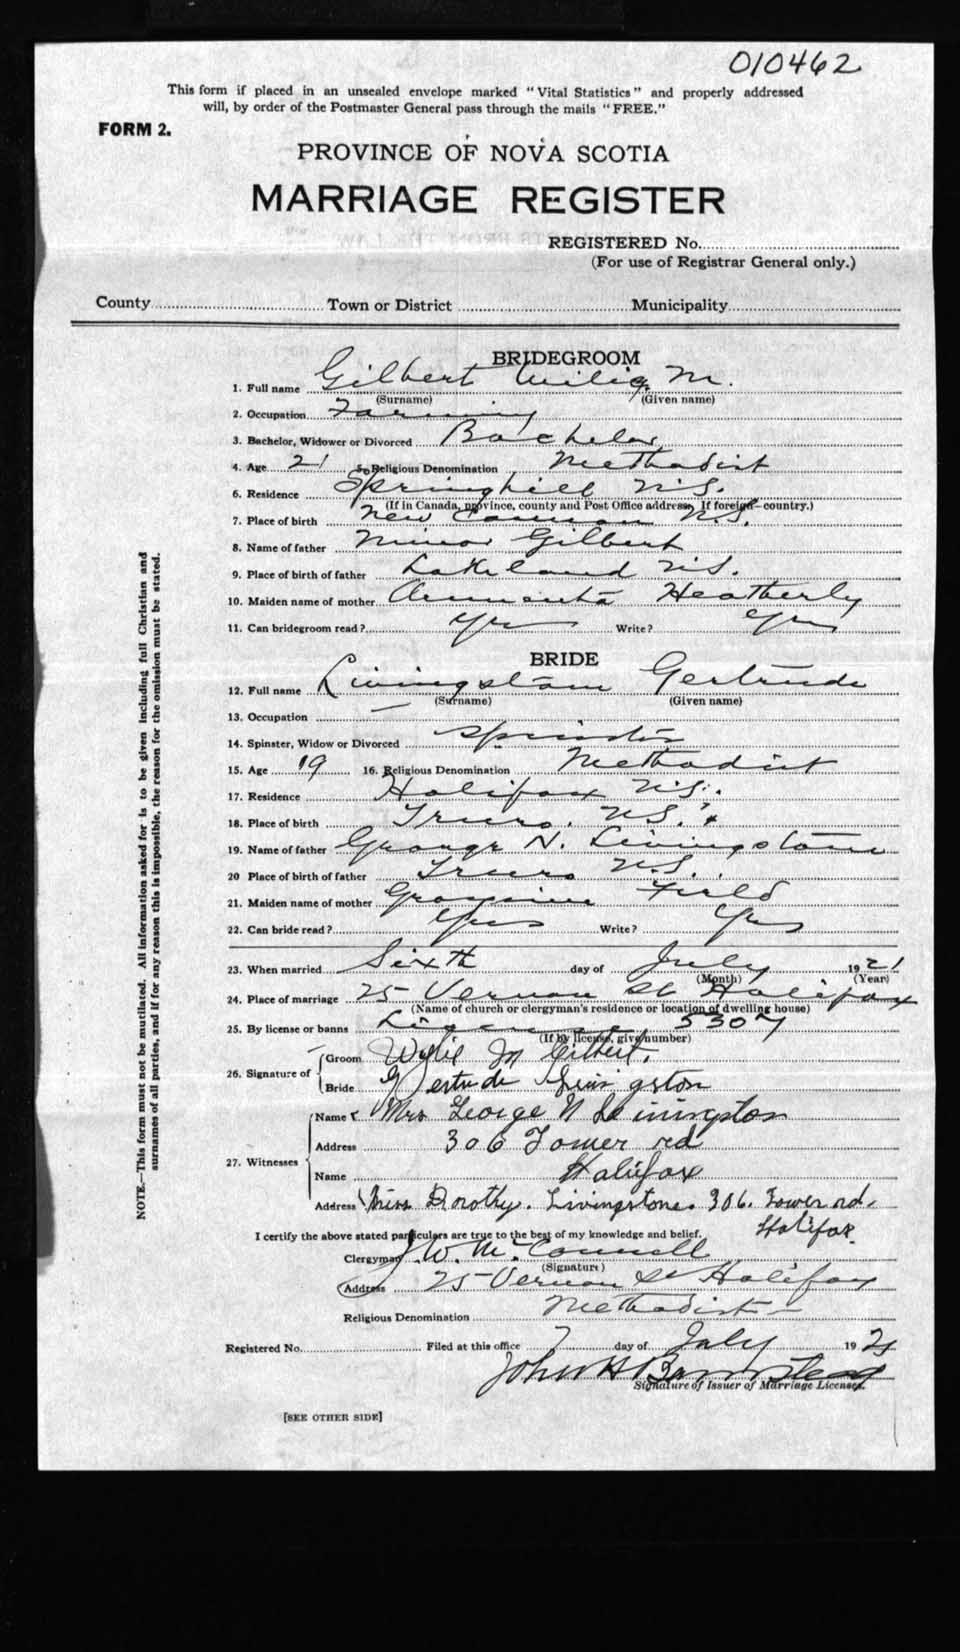 010462
This form if placed in an unsealed envelope marked "Vital Statistics" and properly addressed
will, by order of the Postmaster General pass through the mails "FREE."
FORM 2.
PROVINCE OF NOVA SCOTIA
MARRIAGE REGISTER
REGISTERED No.
(For use of Registrar General only.)
County Town or District Municipality
BRIDEGROOM
1. Full name Gilbert M.
(Surname) (Given name)
2. Occupation Farming
3. Bachelor, Widower or Divorced Bachelor
4. Age 21 5. Religious Denomination Methodist
6. Residence Springhill N.S.
(If in Canada, province, county and Post Office address. If foreign—country.)
7. Place of birth New Canaan N.S.
8. Name of father Minor Gilbert
9. Place of birth of father Lakeland N.S.
10. Maiden name of mother Heatherly
11. Can bridegroom read? Yes Write? Yes
BRIDE
12. Full name Livingstone Gertrude
(Surname) (Given name)
13. Occupation —
14. Spinster, Widow or Divorced Spinster
15. Age 19 16. Religious Denomination Methodist
17. Residence Halifax N.S.
18. Place of birth Truro, N.S.
19. Name of father George N. Livingstone
20 Place of birth of father Truro N.S.
21. Maiden name of mother Field
22. Can bride read? Yes Write? Yes
23. When married Sixth day of July 1921
(Month) (Year)
24. Place of marriage 25 Vernon St Halifax
(Name of church or clergyman's residence or location of dwelling house)
25. By license or banns License 5307
(If by license, give number)
26. Signature of
Groom Wylie M Gilbert.
Bride Gertrude Livingston
27. Witnesses
Name Mrs George N Livingston
Address 306 Tower rd
Name Halifax
Address Miss Dorothy. Livingstone. 306. Tower rd.
Halifax.
I certify the above stated particulars are true to the best of my knowledge and belief.
Clergyman J. W. McConnell
(Signature)
Address 25 Vernon St Halifax
Religious Denomination Methodist
Registered No. Filed at this office 7 day of July 1921
John H Barnstead
Signature of Issuer of Marriage Licenses.
[SEE OTHER SIDE]
NOTE.—This form must not be mutilated. All information asked for is to be given including full Christian and
surnames of all parties, and if for any reason this is impossible, the reason for the omission must be stated.